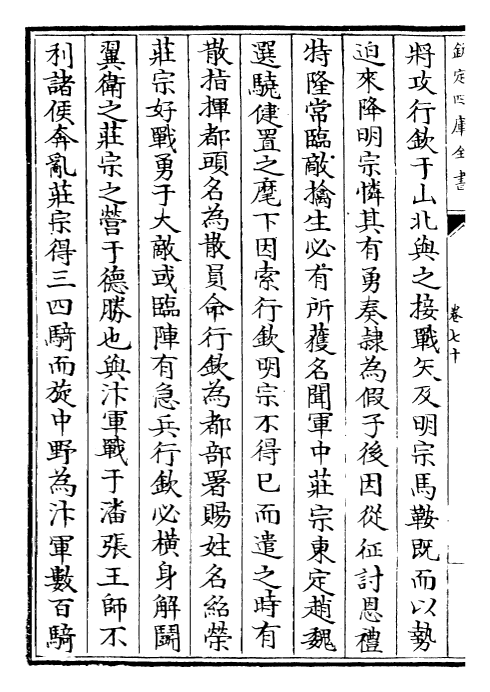 欽定四庫全書
卷七十
將攻行欽于山北與之接戰矢及明宗馬鞍既而以勢
迫來降明宗憐其有勇奏隷為假子後因從征討恩禮
特隆常臨敵擒生必有所獲名聞軍中莊宗東定趙魏
選驍健置之麾下因索行欽明宗不得已而遣之時有
散指揮都頭名為散員命行欽為都部署賜姓名紹榮
莊宗好戰勇于大敵或臨陣有急兵行欽必橫身解鬬
翼衛之莊宗之營于德勝也與汴軍戰于潘張王師不
利諸便奔亂莊宗得三四騎而旋中野為汴軍數百騎